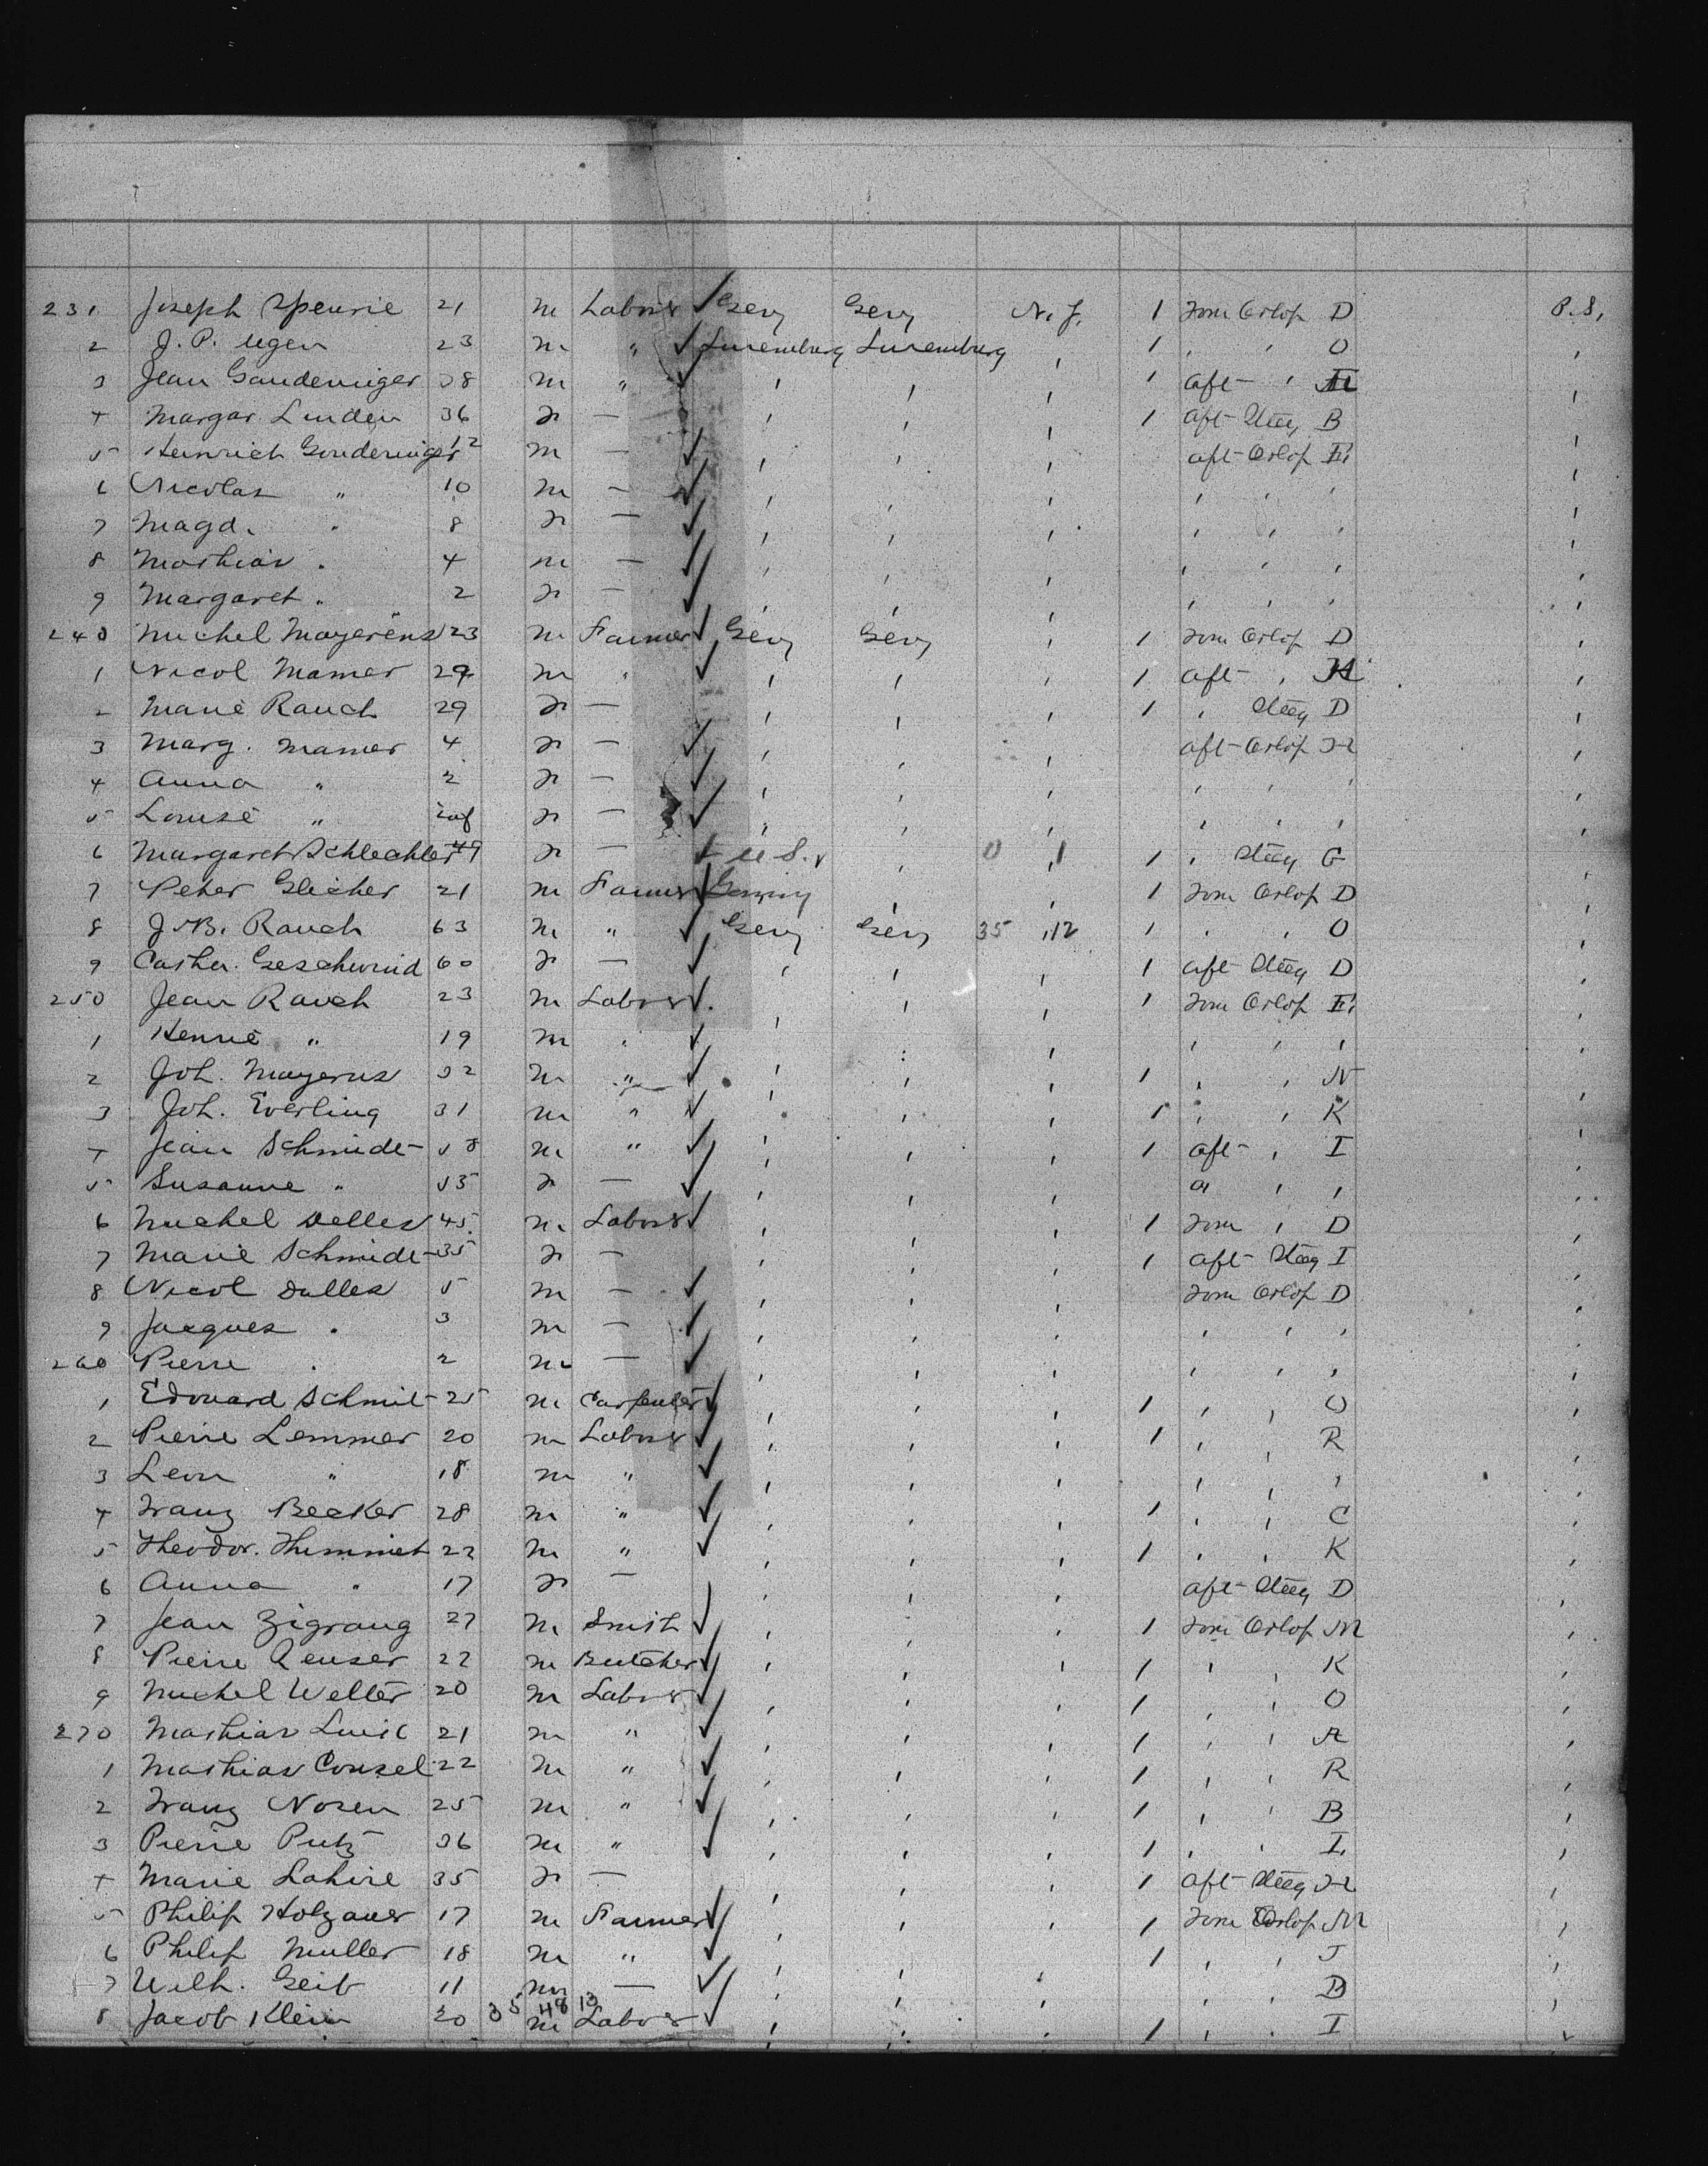 231 Joseph 21 m Labour ✓ Gery Gery N.Y. 1 Fore Orlop D P.S.
2 J. P. Ugen 23 m " ✓ Luxemburg Luxemburg ' 1 ' ' O '
3 Jean Gauderniger 38 m " ✓ ' ' ' 1 aft ' '
4 Margar. Linden 36 F — ' ' ' 1 aft Steeg B '
5 Heinrich Gouderniger 12 m — ✓ ' ' ' aft Orlop E '
6 Nicolas " 10 m — ✓ ' ' ' ' ' ' '
7 Magd. " 8 F — ✓ ' ' ' ' ' ' '
8 Mathias " 4 m — ✓ ' ' ' ' ' ' '
9 Margaret " 2 F — ✓ ' ' ' ' ' ' '
240 Michel Mayerens 23 m Farmer ✓ Gery Gery ' 1 Fore Orlop D '
1 Nicol Mamer 29 m " ✓ ' ' ' 1 aft ' H '
2 Marie Rauch 29 F — ' ' ' 1 ' Steeg D '
3 Marg. Mamer 4 F — ✓ ' ' ' aft Orlop H '
4 Anna " 2 F — ✓ ' ' ' ' ' ' '
5 Louise " inf F — ✓ ' ' ' ' ' ' '
6 Margareth Schlechter 49 F — U.S. ' 0 1 1 ' Steeg G '
7 Peter Gleicher 21 m Farmer ✓ ' ' 1 Fore Orlop D '
8 J. B. Rauch 63 m " ✓ Gery Gery 35 12 1 ' ' O '
9 Catha. Geschwind 60 F — ✓ ' ' ' 1 aft Steeg D '
250 Jean Rauch 23 m Labour ✓ ' ' ' 1 Fore Orlop E '
1 Henrie " 19 m ' ✓ ' ' ' ' ' ' '
2 Joh. Mayerus 32 m " ✓ ' ' ' 1 ' ' N '
3 Joh. Everling 31 m " ✓ ' ' ' 1 ' ' K '
4 Jean Schmidt 58 m " ✓ ' ' ' 1 aft ' I '
5 Susanne " 55 F — ✓ ' ' ' a ' ' '
6 Michel Delles 45 m Labour ✓ ' ' ' 1 Fore ' D '
7 Marie Schmidt 35 F — ' ' ' 1 aft Steeg I '
8 Nicol Dalles 5 m — ✓ ' ' ' Fore Orlop D '
9 Jacques " 3 m — ✓ ' ' ' ' ' ' '
260 Pierre " 2 m — ✓ ' ' ' ' ' ' '
1 Edouard Schmit 25 m Carpenter ✓ ' ' ' 1 ' ' O '
2 Pierre Lemmer 20 m Labour ✓ ' ' ' 1 ' ' R '
3 Leon " 18 m " ✓ ' ' ' ' ' ' '
4 Franz Becker 28 m " ✓ ' ' ' 1 ' ' C '
5 Theodor. Themmet 22 m " ✓ ' ' ' 1 ' ' K '
6 Anna " 17 F — ' ' ' aft Steeg D '
7 Jean Zigrang 27 m Smith ✓ ' ' ' 1 Fore Orlop M '
8 Pierre 22 m Butcher ✓ ' ' ' 1 ' ' K '
9 Michel Welter 20 m Labour ✓ ' ' ' 1 ' ' O '
270 Mathias 21 m " ✓ ' ' ' 1 ' ' A '
1 Mathias Consel 22 m " ✓ ' ' ' 1 ' ' R '
2 Franz Nosen 25 m " ✓ ' ' ' 1 ' ' B '
3 Pierre Putz 36 m " ✓ ' ' ' 1 ' ' I '
4 Marie Lahire 35 F — ' ' ' 1 aft Steeg H '
5 Philip Holzauer 17 m Farmer ✓ ' ' ' 1 Fore Orlop M '
6 Philip Muller 18 m " ✓ ' ' ' 1 ' ' J '
7 Wilh. Geib 11 m — ✓ ' ' ' ' ' B '
35 48 13
8 Jacob Klein 20 m Labour ✓ ' ' ' 1 ' ' I '